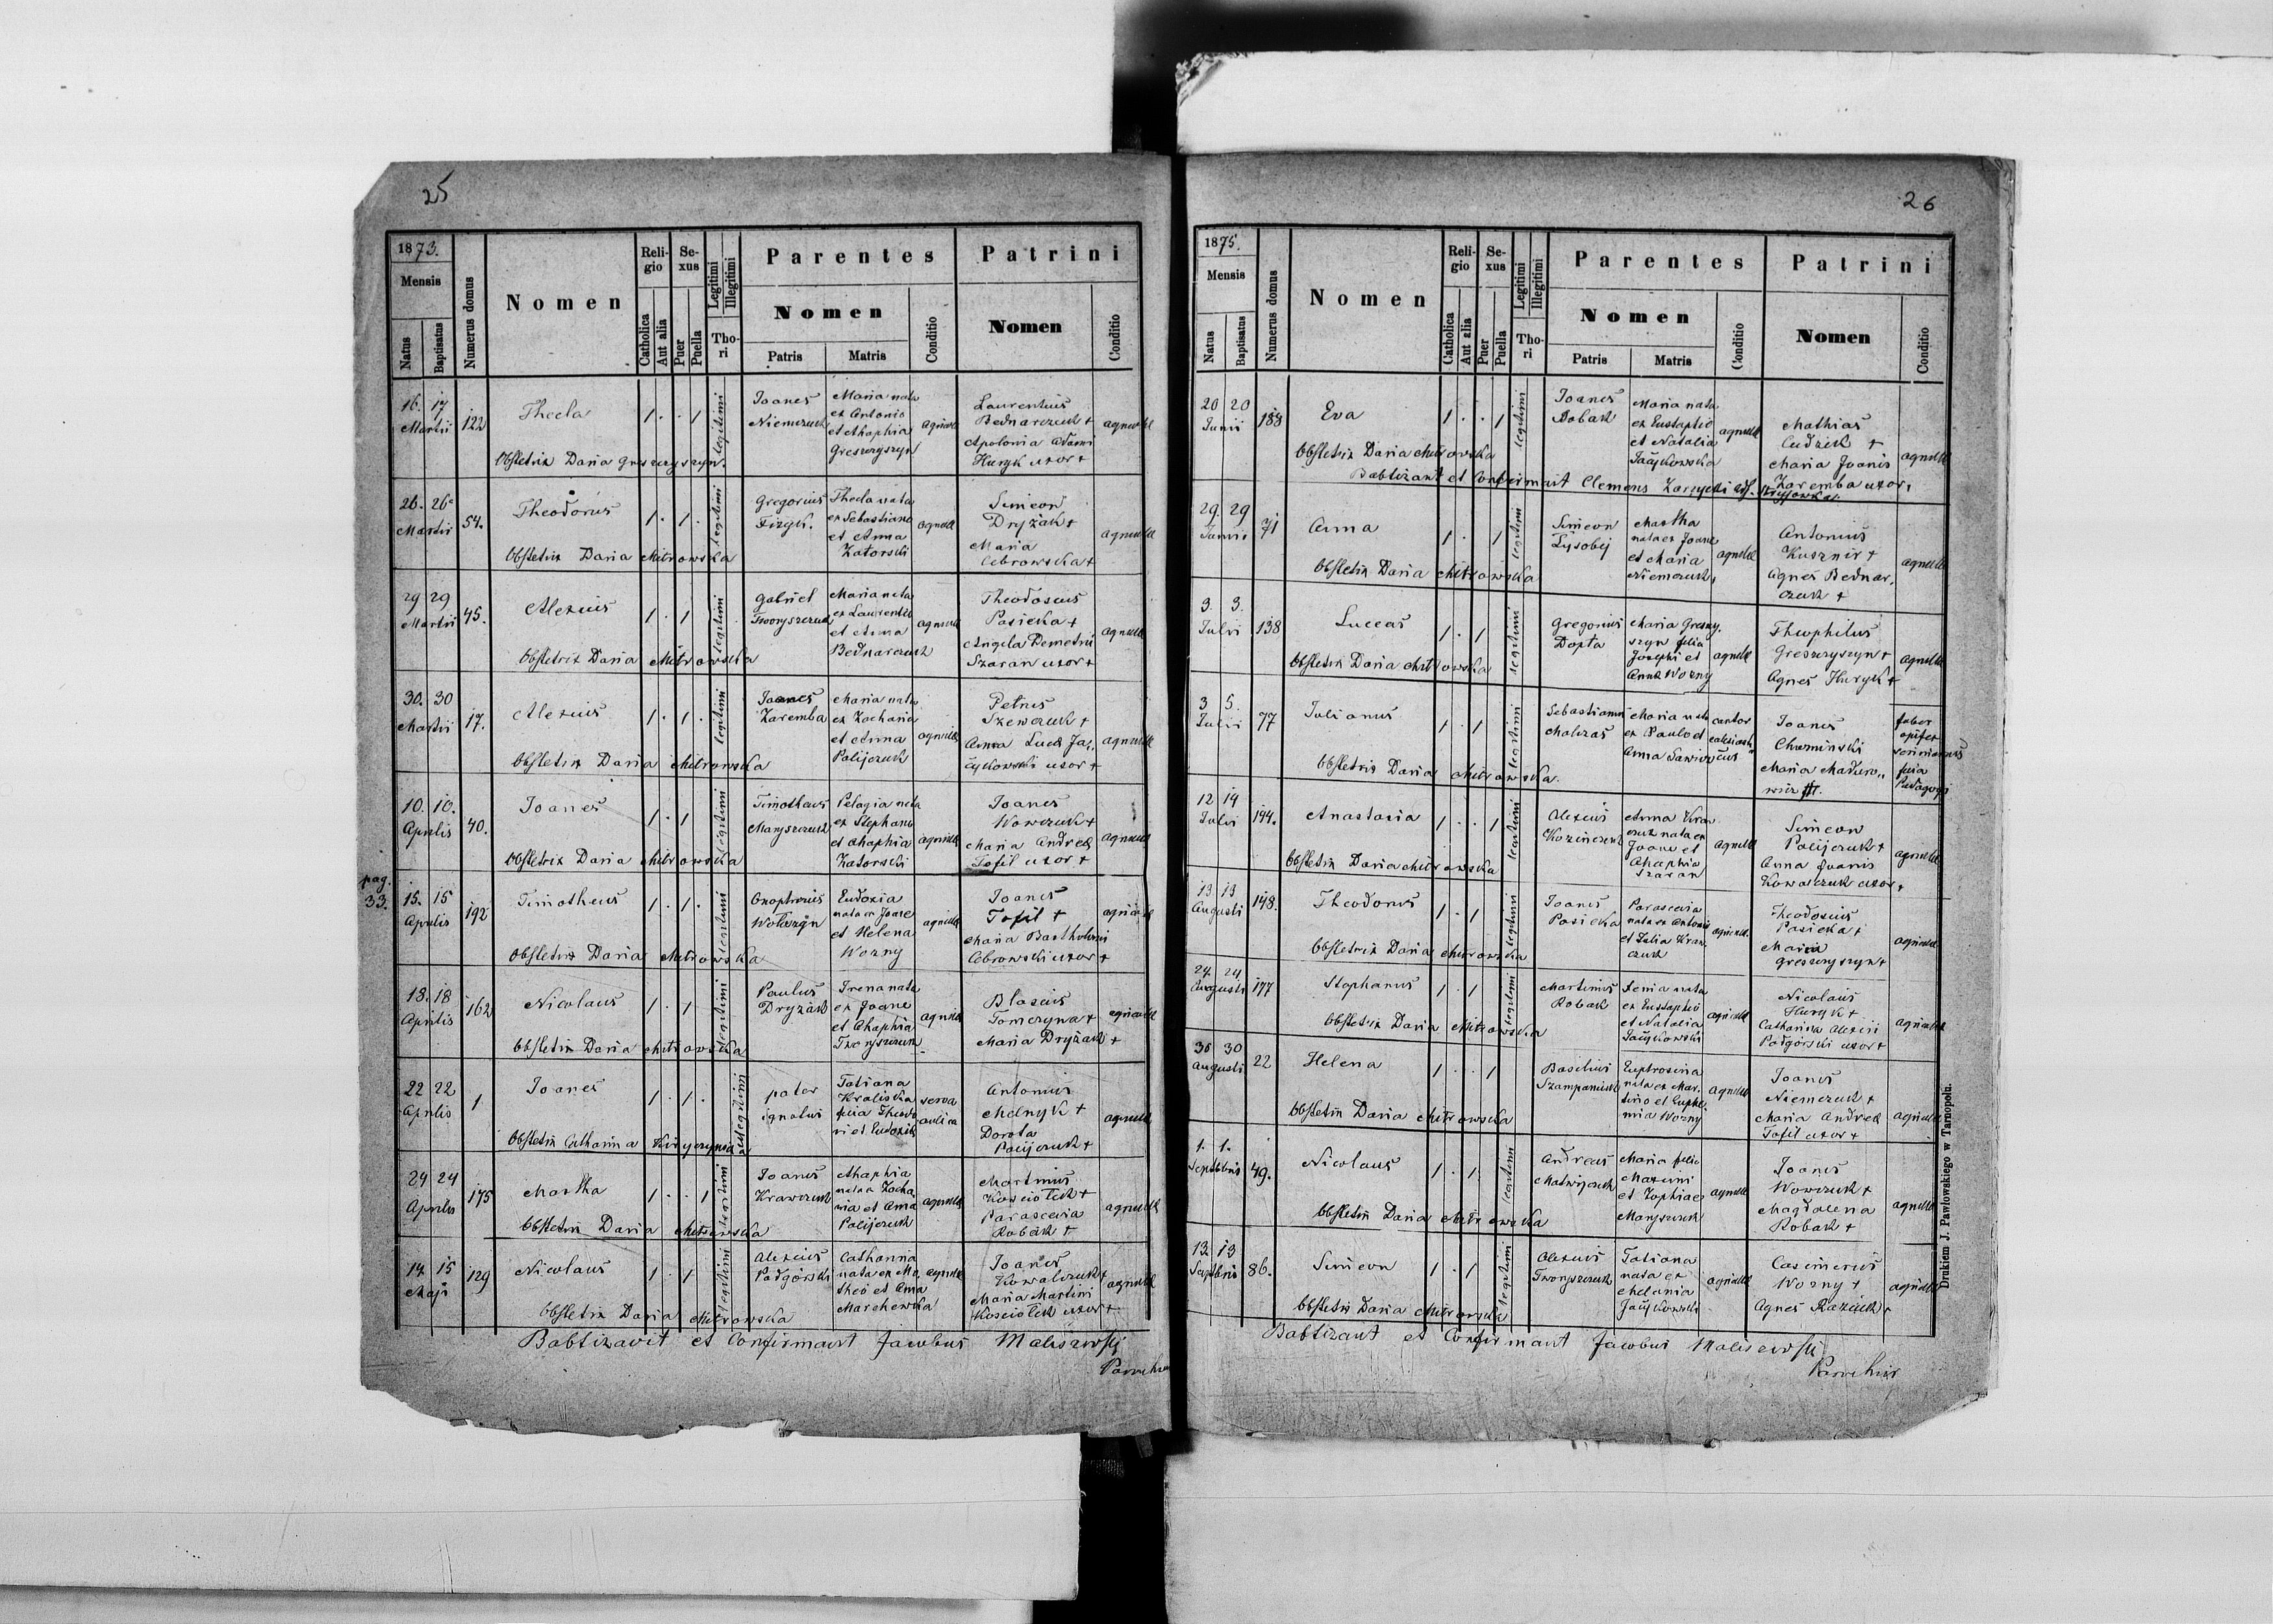 25
1873.
Mensis
Natus
Baptisatus
Numerus domus
Nomen
Reli-
gio
Catholica
Aut alia
Se-
xus
Puer
Puella
Legitimi
Illegitimi
Tho-
ri
Parentes
Nomen
Patris
Matris
Conditio
Patrini
Nomen
Conditio
16. 17
Martii
122
Thecla
1 . . 1
legitimi
Joanes
Niemczuk
Maria nata
ex Antonio
et Ahaphia
Greszczyszyn
agricolae
Laurentius
Bednarczuk +
Apolonia Adami
Huryk uxor +
Obstetrix Daria Greszczyszyn.
26. 26
Martii
54.
Theodorus
1. . 1.
legitimi
Gregorius
Fizyk.
Thecla nata
ex Sebastiano
et Anna
Zatorski
agricolae
Simeon
Dryżak +
Maria
Cebrowska +
Obstetrix Daria Mitrowska
29 29
Martii
45.
Alexius
1. . 1
legitimi
Gabriel
Tworyszczuk
Maria nata
ex Laurentio
et Anna
Bednarczuk
agricolae
Theodosius
Pasieka +
Angela Demetrii
Szaran uxor +
Obstetrix Daria Mitrowska
30. 30
Martii
17.
Alexius
1. . 1.
legitimi
Joanes
Zaremba
Maria nata
ex Zacharia
et Anna
Palijczuk
agricolae
Petrus
Szewczuk +
Anna Luca Ja,,
uxor +
Obstetrix Daria Mitrowska
10. 10.
Aprilis
40.
Joanes
1. . 1
legitimi
Timotheus
Maryszczuk
Pelagia nata
ex Stephano
et Ahaphia
Zatorski
agricolae
Joanes
Wowczuk +
Maria Andrea
Tofil uxor +
Obstetrix Daria Mitrowska
pag.
33.
15. 15
Aprilis
192
Timotheus
1. . 1.
legitimi
Onophrius
Wołoszyn
Eudoxia
nata ex Joane
et Helena
Worny
agricolae
Joanes
Tofil +
Maria Bartholomei
Cebrowski uxor +
Obstetrix Daria Mitrowska
18. 18
Aprilis
162
Nicolaus
1. . 1
legitimi
Paulus
Dryżak
Irena nata
ex Joane
et Ahaphia
Tworyszczuk
agricolae
Blasius
Tomczyna +
Maria Dryżak +
Obstetrix Daria Mitrowska
22 22
Aprilis
1
Joanes
1. . 1.
illegitimi
pater
ignotus
Tatiana
Kraliska
filia Theodo
ri et Eudoxia
serva
aulica
Antonius
Melnyk +
Dorota
Palijczuk +
Obstetrix Catharina
24 24
Aprilis
175
Martha
1. . . 1
legitimi
Joanes
Krawczuk
Ahaphia
nata ex Zacha,
ria et Anna
Palijczuk
agricolae
Martinus
Kosciołek +
Parascevia
Robak +
Obstetrix Daria Mitrowska
14. 15
Maji
129
Nicolaus
1. . 1
legitimi
Alexius
Padgórski
Catharina
nata ex Ma,
theo et Anna
Marchewka
agricolae
Joanes
Kowalczuk +
Maria Martini
Kosciołek uxor +
Obstetrix Daria Mitrowska
Babtizavit et Confirmavit Jacobus Maliszewski
Parochus
26
1875.
Mensis
Natus
Baptisatus
Numerus domus
Nomen
Reli-
gio
Catholica
Aut alia
Se-
xus
Puer
Puella
Legitimi
Illegitimi
Tho-
ri
Parentes
Nomen
Patris
Matris
Conditio
Patrini
Nomen
Conditio
20 20
Junii
188
Eva
1 . . 1
legitimi
Joanes
Robak
Maria nata
ex Eustaphio
et Natalia
agricolae
Mathias
Cudzik +
Maria Joanis
Zaremba uxor,
Obstetrix Daria Mitrowska
Babtizavit et Confirmavit Clemens
29. 29
71
Anna
1 . 1
legitimi
Simeon
Łysobij
Martha
nata ex Joane
et Maria
Niemczuk,
agricolae
Antonius
Kusznir +
Agnes Bednar,
czuk +
Obstetrix Daria Mitrowska
3. 3.
Julii
138
Luccas
1 . 1
legitimi
Gregorius
Dopta
Maria Greszczy,
szyn filia
Josephi et
Anna Worny
agricolae
Theophilus
Greszczyszyn +
Agnes Huryk +
Obstetrix Daria Mitrowska
3 5.
Julii
77
Julianus
1 . 1
legitimi
Sebastianus
Maria nata
ex Paulo et
Anna
cantor
Joanes
Chuminski
Maria
faber
filia
Obstetrix Daria Mitrowska.
12 14
Julii
194.
Anastasia
1 . . 1
legitimi
Alexius
Anna Kraw
czuk nata ex
Joane et
Ahaphia
Szaran
agricolae
Simeon
Palijczuk +
Anna Joanis
Kowalczuk uxor +
Obstetrix Daria Mitrowska
13 13
Augusti
148.
Theodorus
1 . 1
legitimi
Joanes
Pasieka
Parascevia
nata ex Antonio
et Julia Kraw
czuk
agricolae
Theodosius
Pasieka +
Maria
Greszczyszyn +
Obstetrix Daria Mitrowska
24. 24
Augusti
177
Stephanus
1 . 1
legitimi
Martinus
Robak
Xenia nata
ex Eustaphio
et Natalia
agricolae
Nicolaus
Huryk +
Catharina Alexii
Padgórski uxor +
Obstetrix Daria Mitrowska
30 30
Augusti
22
Helena
1 . . 1
Basilius
Szampaniuk
Euphrosina
nata ex Mar,
tino et Euphe,
mia Worny
agricolae
Joanes
Niemczuk +
Maria Andrea
Tofil uxor +
Obstetrix Daria Mitrowska
1. 1.
Septbris
49.
Nicolaus
1 . 1.
legitimi
Andreas
Matwijczuk
Maria filia
Maximi
et Zophiae
Maryszczuk
agricolae
Joanes
Wowczuk +
Magdalena
Robak +
Obstetrix Daria Mitrowska
13. 13
Septbris
86.
Simeon
1 . 1
legitimi
Alexius
Tworyszczuk
Tatiana
nata ex
Melania
agricolae
Casimirus
Worny +
Agnes
Obstetrix Daria Mitrowska
Babtizavit et Confirmavit Jacobus Maliszewski
Parochus
Drukiem J. Pawłowskiego w Tarnopolu.